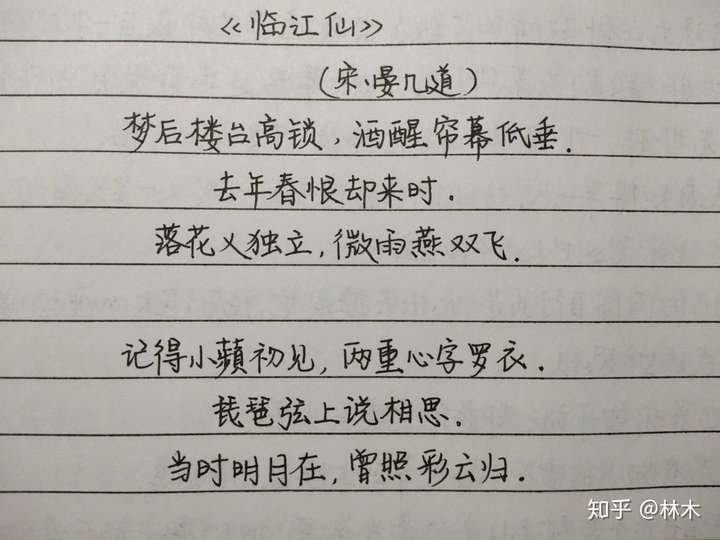 《临江仙》
（宋·晏几道）
梦后楼台高锁，酒醒帘幕低垂．
去年春恨却来时．
落花人独立，微雨燕双飞．
记得小蘋初见，两重心字罗衣．
琵琶弦上说相思．
当时明月在，曾照彩云归．
知乎 @林木